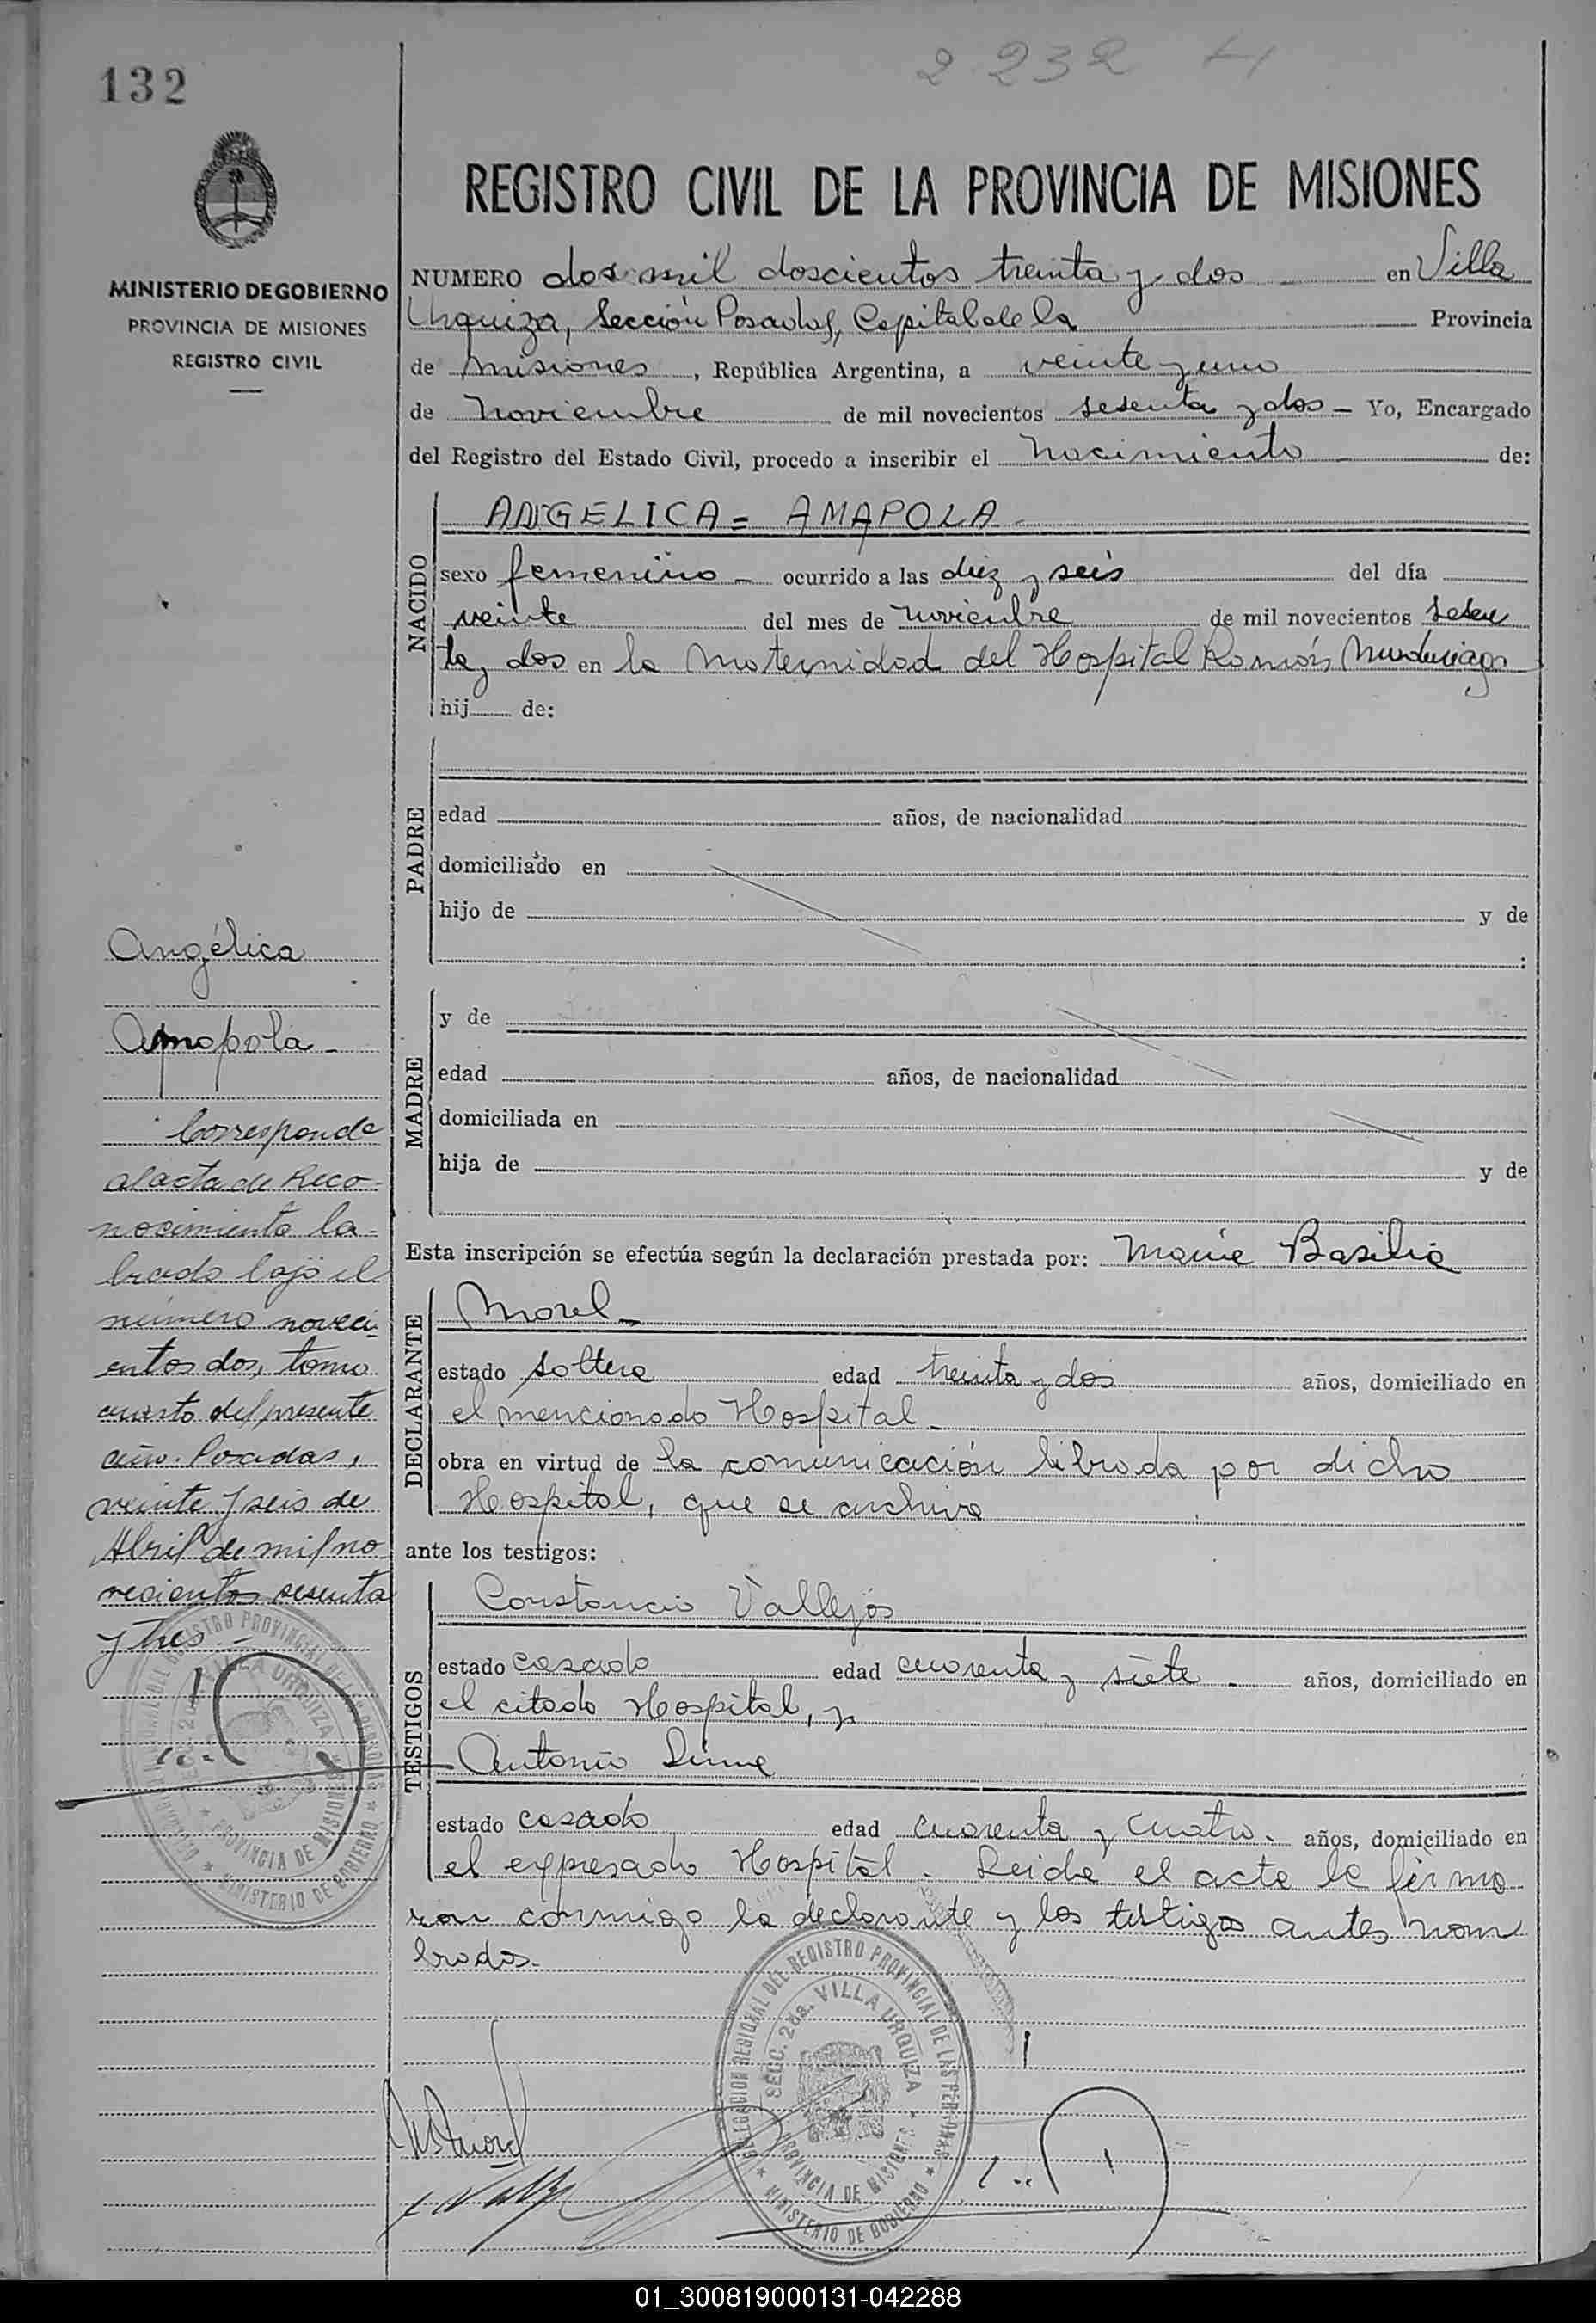 2 232 H
132
REGISTRO CIVIL DE LA PROVINCIA DE MISIONES
MINISTERIO DE GOBIERNO
PROVINCIA DE MISIONES
REGISTRO CIVIL
NUMERO dos mil doscientos treinta y dos en Villa
Urquiza, Sección Posadas, Capital de la Provincia
de Misiones, República Argentina, a veinte y uno
de Noviembre de mil novecientos sesenta y dos - Yo, Encargado
del Registro del Estado Civil, procedo a inscribir el Nacimiento de:
NACIDO
ANGELICA = AMAPOLA -
sexo femenino - ocurrido a las diez y seis del día
veinte del mes de noviembre de mil novecientos sesen
ta y dos en la Maternidad del Hospital Ramón Madariaga
hij de:
PADRE
edad años, de nacionalidad
domiciliado en
hijo de y de
:
MADRE
y de
edad años, de nacionalidad
domiciliada en
hija de y de
Esta inscripción se efectúa según la declaración prestada por: Maria Basilia
DECLARANTE
Morel -
estado soltera edad treinta y dos años, domiciliado en
el mencionado Hospital -
obra en virtud de la comunicación librada por dicho
Hospital, que se archiva
ante los testigos:
TESTIGOS
Constancio Vallejos
estado casado edad cuarenta y siete - años, domiciliado en
el citado Hospital, y
Antonio
estado casado edad cuarenta y cuatro - años, domiciliado en
el expresado Hospital - Leida el acta la firma
ron conmigo la declarante y los testigos antes nom
brados.-
Angélica
Amapola -
Corresponde
al acta de Reco-
nocimiento la-
brada bajo el
número noveci-
entos dos, tomo
cuarto del presente
año. Posadas,
veinte y seis de
Abril de mil no
vecientos sesenta
y tres -
DELEGACION REGIONAL DEL REGISTRO PROVINCIAL DE LAS PERSONAS
SECC. 2da. VILLA URQUIZA
PROVINCIA DE MISIONES
* MINISTERIO DE GOBIERNO *
DELEGACION REGIONAL DEL REGISTRO PROVINCIAL DE LAS PERSONAS
SECC. 2da. VILLA URQUIZA
PROVINCIA DE MISIONES
* MINISTERIO DE GOBIERNO *
MBMorel
01_300819000131-042288